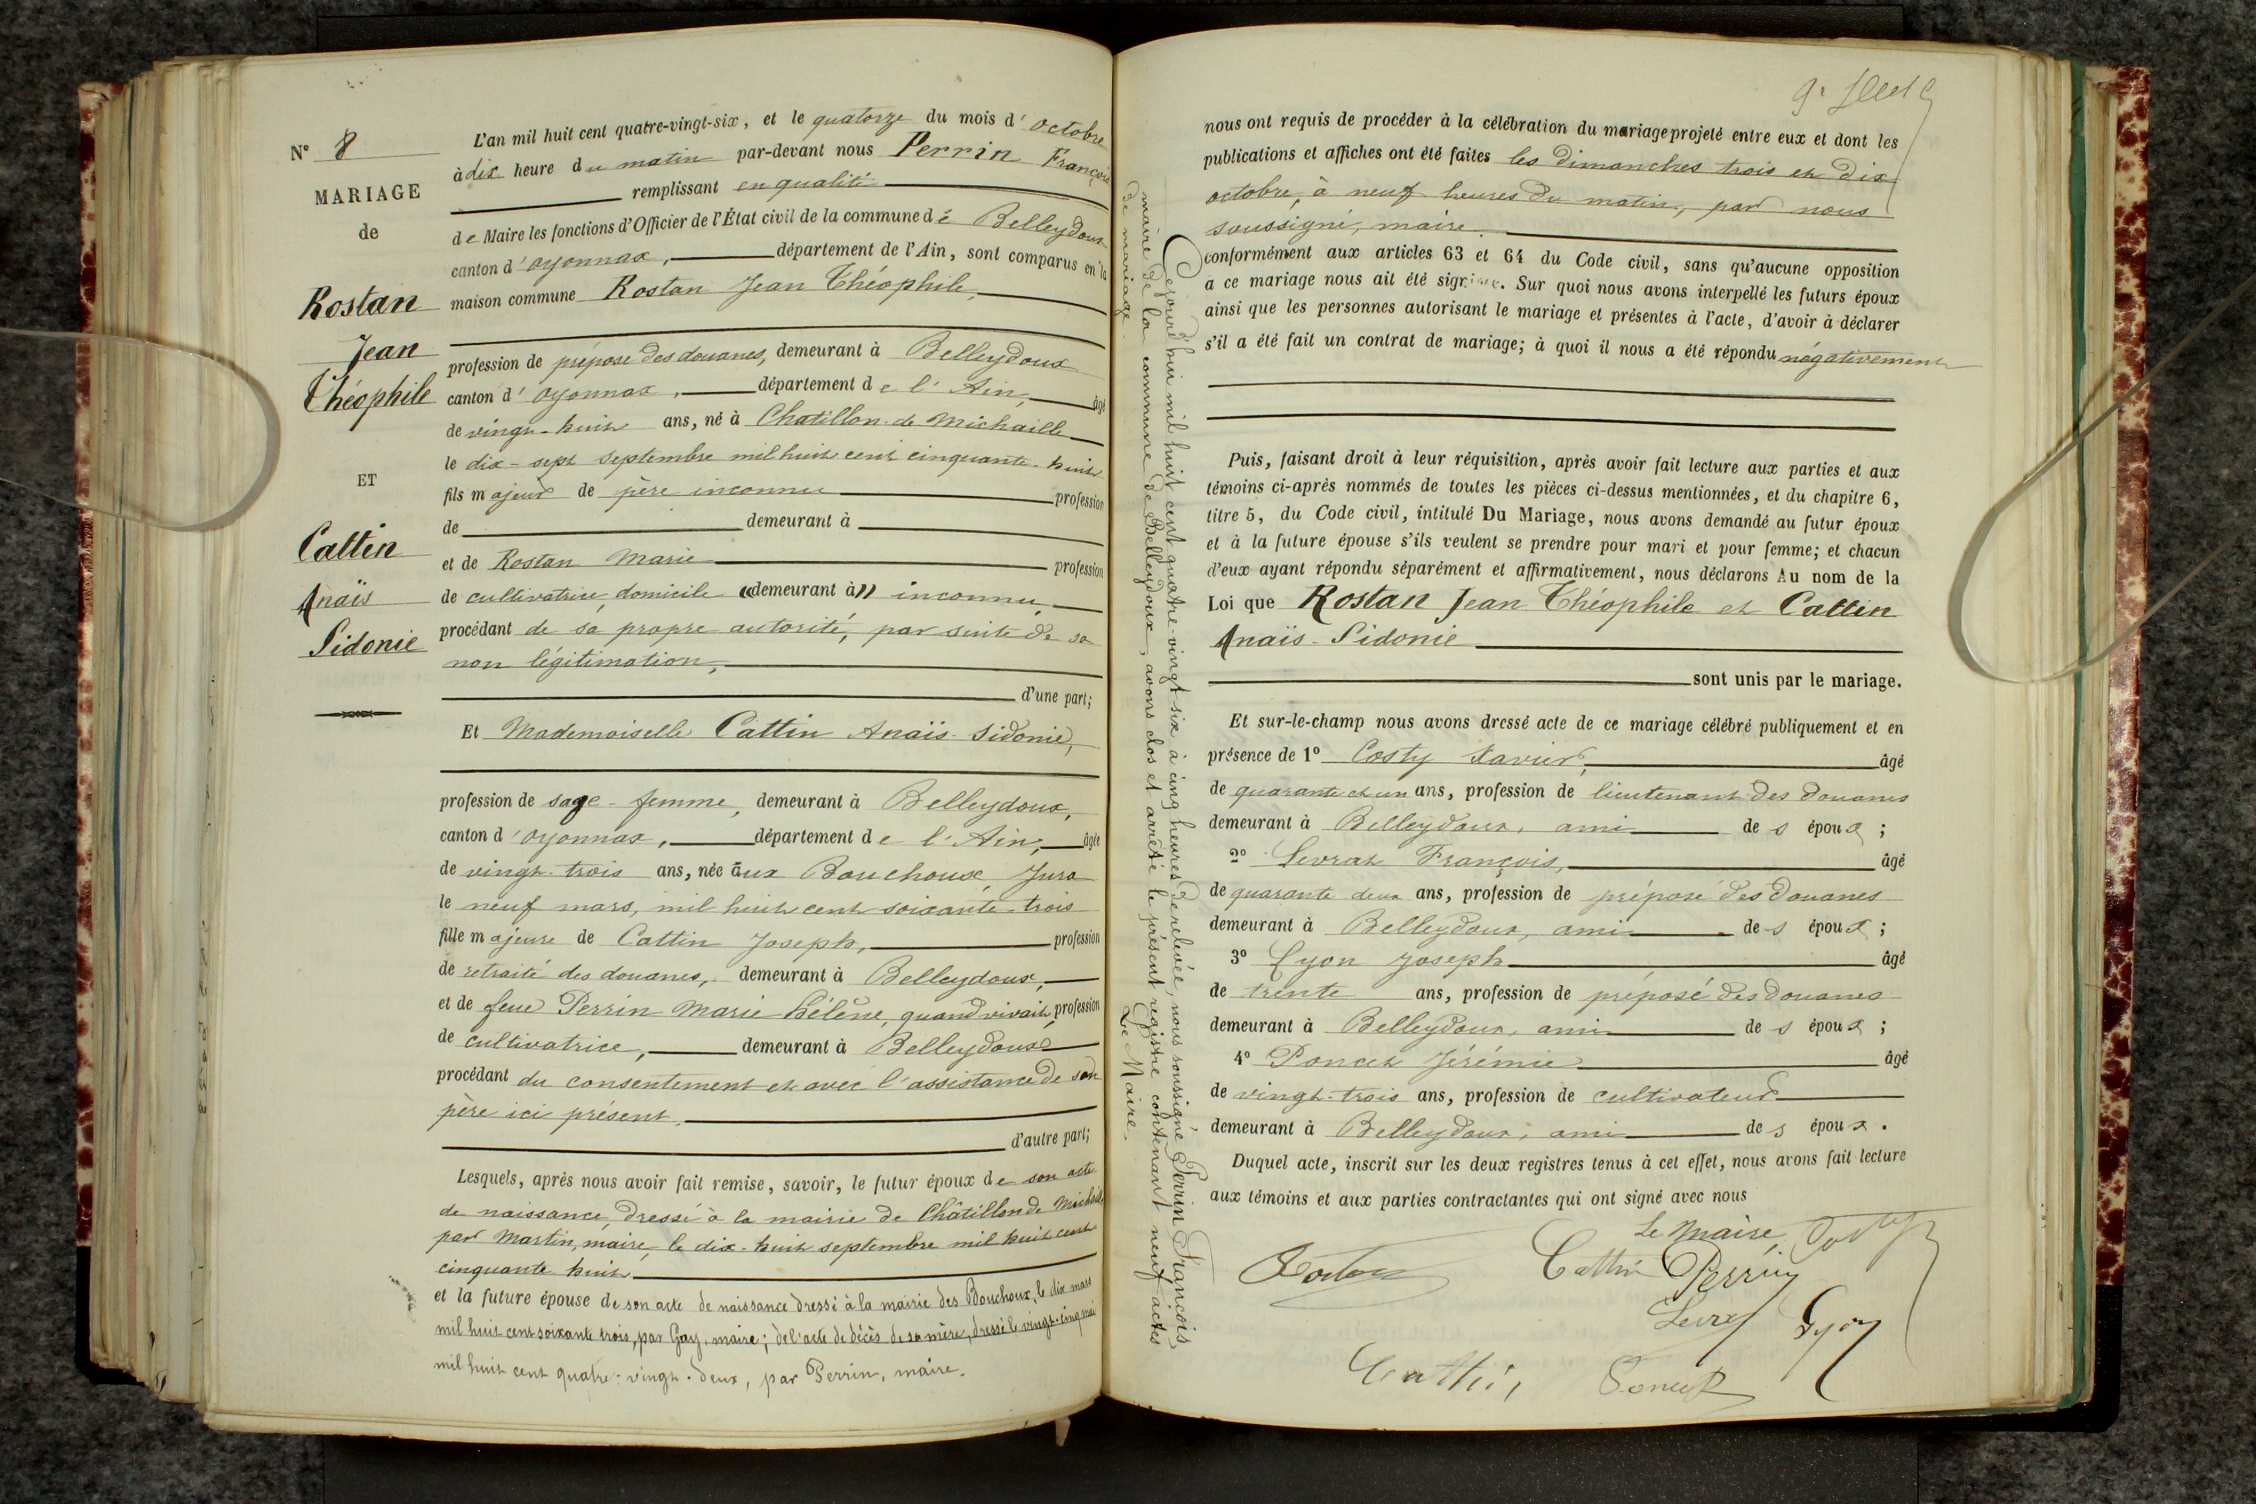 N° 8
MARIAGE
de
Rostan
Jean
Théophile
ET
Cattin
Anaïs
Sidonie
L'an mil huit cent quatre-vingt-six, et le quatorze du mois d'octobre
à dix heure du matin par-devant nous Perrin François
remplissant en qualité
de Maire les fonctions d'Officier de l'État civil de la commune de Belleydoux
canton d'oyonnax, département de l'Ain, sont comparus en la
maison commune Rostan Jean Théophile,
profession de préposé des douanes, demeurant à Belleydoux
canton d'oyonnax, département de l'Ain, âgé
de vingt-huit ans, né à Chatillon-de-Michaille
le dix-sept septembre mil huit cent cinquante-huit
fils majeur de père inconnu profession
de demeurant à
et de Rostan Marie profession
de cultivatrice, domicile «demeurant à» inconnu,
procédant de sa propre autorité, par suite de sa
non légitimation,
d'une part;
Et Mademoiselle Cattin Anaïs-Sidonie,
profession de sage-femme, demeurant à Belleydoux,
canton d'oyonnax, département de l'Ain, âgée
de vingt-trois ans, née aux Bouchoux, Jura
le neuf mars, mil huit cent soixante-trois
fille majeure de Cattin Joseph, profession
de retraité des douanes, demeurant à Belleydoux,
et de feue Perrin Marie Hélène, quand vivait, profession
de cultivatrice, demeurant à Belleydoux
procédant du consentement et avec l'assistance de son
père ici présent,
d'autre part;
Lesquels, après nous avoir fait remise, savoir, le futur époux de son acte
de naissance, dressé à la mairie de Châtillon de Michaille
par Martin, maire, le dix-huit septembre mil huit cent
cinquante huit,
et la future épouse de son acte de naissance dressé à la mairie des Bouchoux, le dix mars
mil huit cent soixante trois, par Gay, maire; de l'acte de décès de sa mère, dressé le vingt-cinq mai
mil huit cent quatre-vingt-deux, par Perrin, maire.
Cejourd'hui mil huit cent quatre-vingt-six à cinq heures de relevée, nous soussigné Perrin François,
maire de la commune de Belleydoux, avons clos et arrêté le présent registre contenant neuf actes
de mariage. Le Maire.
nous ont requis de procéder à la célébration du mariage projeté entre eux et dont les
publications et affiches ont été faites les dimanches trois et dix
octobre, à neuf heures du matin, par nous
soussigné, maire.
conformément aux articles 63 et 64 du Code civil, sans qu'aucune opposition
a ce mariage nous ait été signifiée. Sur quoi nous avons interpellé les futurs époux
ainsi que les personnes autorisant le mariage et présentes à l'acte, d'avoir à déclarer
s'il a été fait un contrat de mariage; à quoi il nous a été répondu négativement
Puis, faisant droit à leur réquisition, après avoir fait lecture aux parties et aux
témoins ci-après nommés de toutes les pièces ci-dessus mentionnées, et du chapitre 6,
titre 5, du Code civil, intitulé Du Mariage, nous avons demandé au futur époux
et à la future épouse s'ils veulent se prendre pour mari et pour femme; et chacun
d'eux ayant répondu séparément et affirmativement, nous déclarons Au nom de la
Loi que Rostan Jean Théophile et Cattin
Anaïs-Sidonie
sont unis par le mariage.
Et sur-le-champ nous avons dressé acte de ce mariage célébré publiquement et en
présence de 1° Costy Xavier, âgé
de quarante et un ans, profession de lieutenant des douanes
demeurant à Belleydoux, ami des époux;
2° Levrat François, âgé
de quarante deux ans, profession de préposé des douanes
demeurant à Belleydoux, ami des époux;
3° Lyon Joseph âgé
de trente ans, profession de préposé des douanes
demeurant à Belleydoux, ami des époux;
4° Poncet Jérémie âgé
de vingt-trois ans, profession de cultivateur
demeurant à Belleydoux, ami des époux.
Duquel acte, inscrit sur les deux registres tenus à cet effet, nous avons fait lecture
aux témoins et aux parties contractantes qui ont signé avec nous
Le Maire,
Cattin Perrin
Levrat Lyon
Cattin Poncet